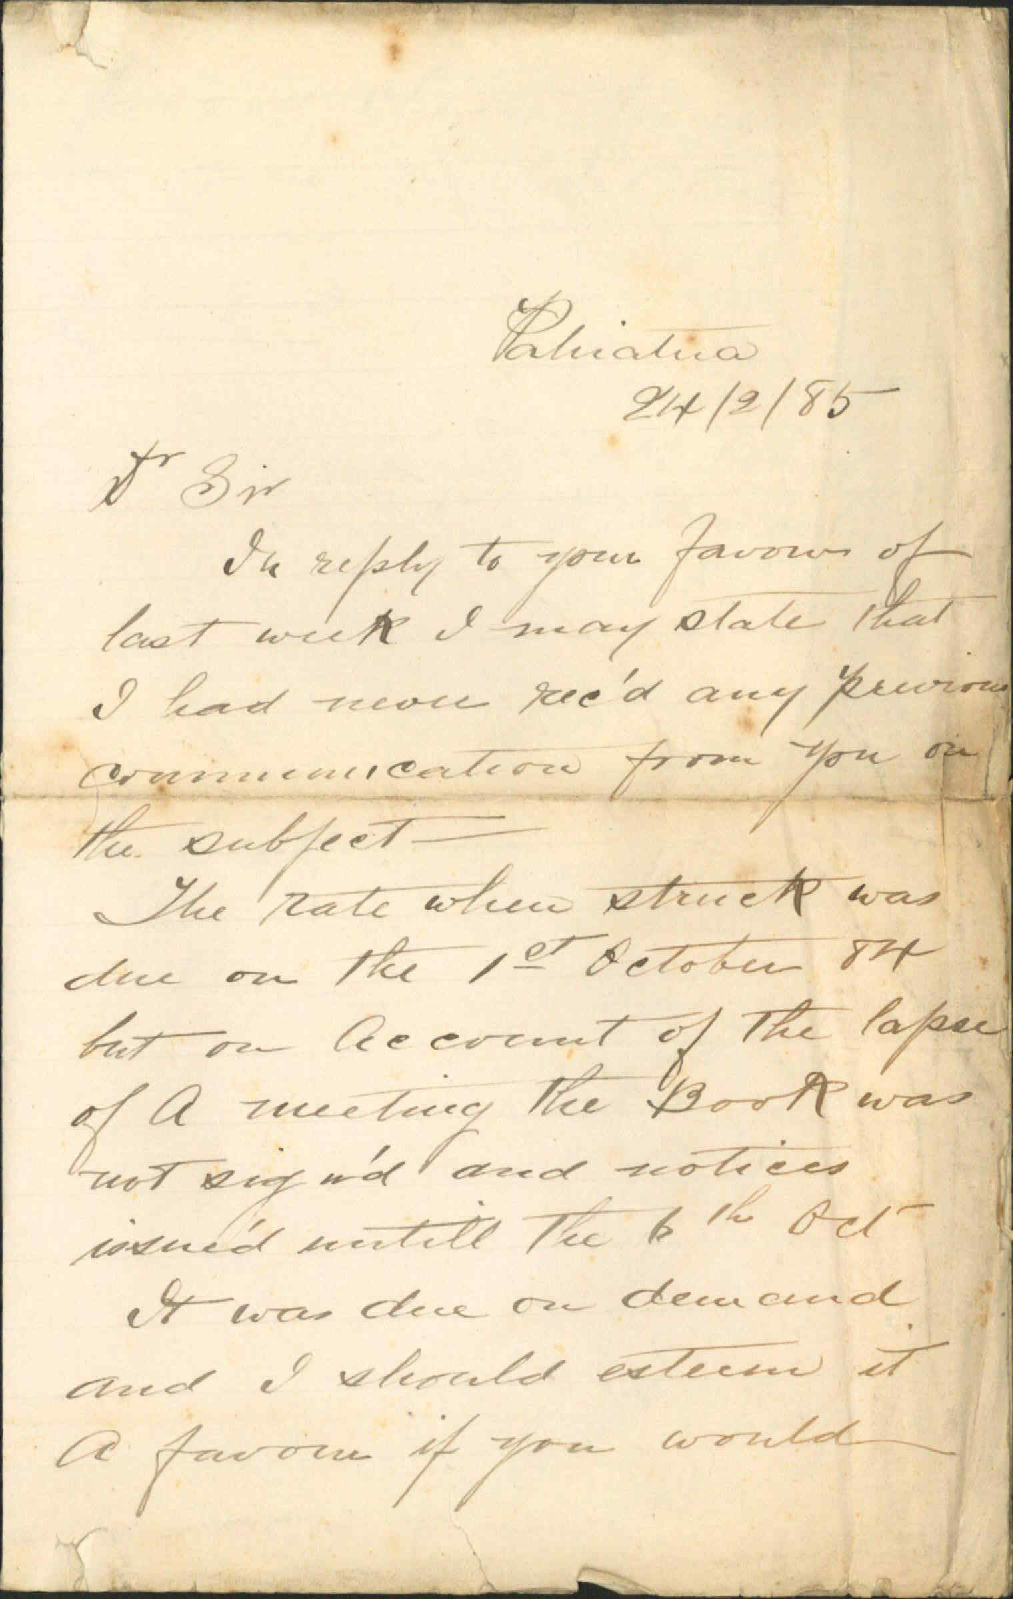 Pahiatua
24/2/85
Dr Sir
In reply to your favour of
last week I may state that
I had never rec'd any previous
communication from you on
the subject —
The rate when struck was
due on the 1st October 84
but on Account of the lapse
of A meeting the Book was
not sign'd and notices
issue'd untill the 6th Oct
It was due on demand
and I should esteem it
A favour if you would